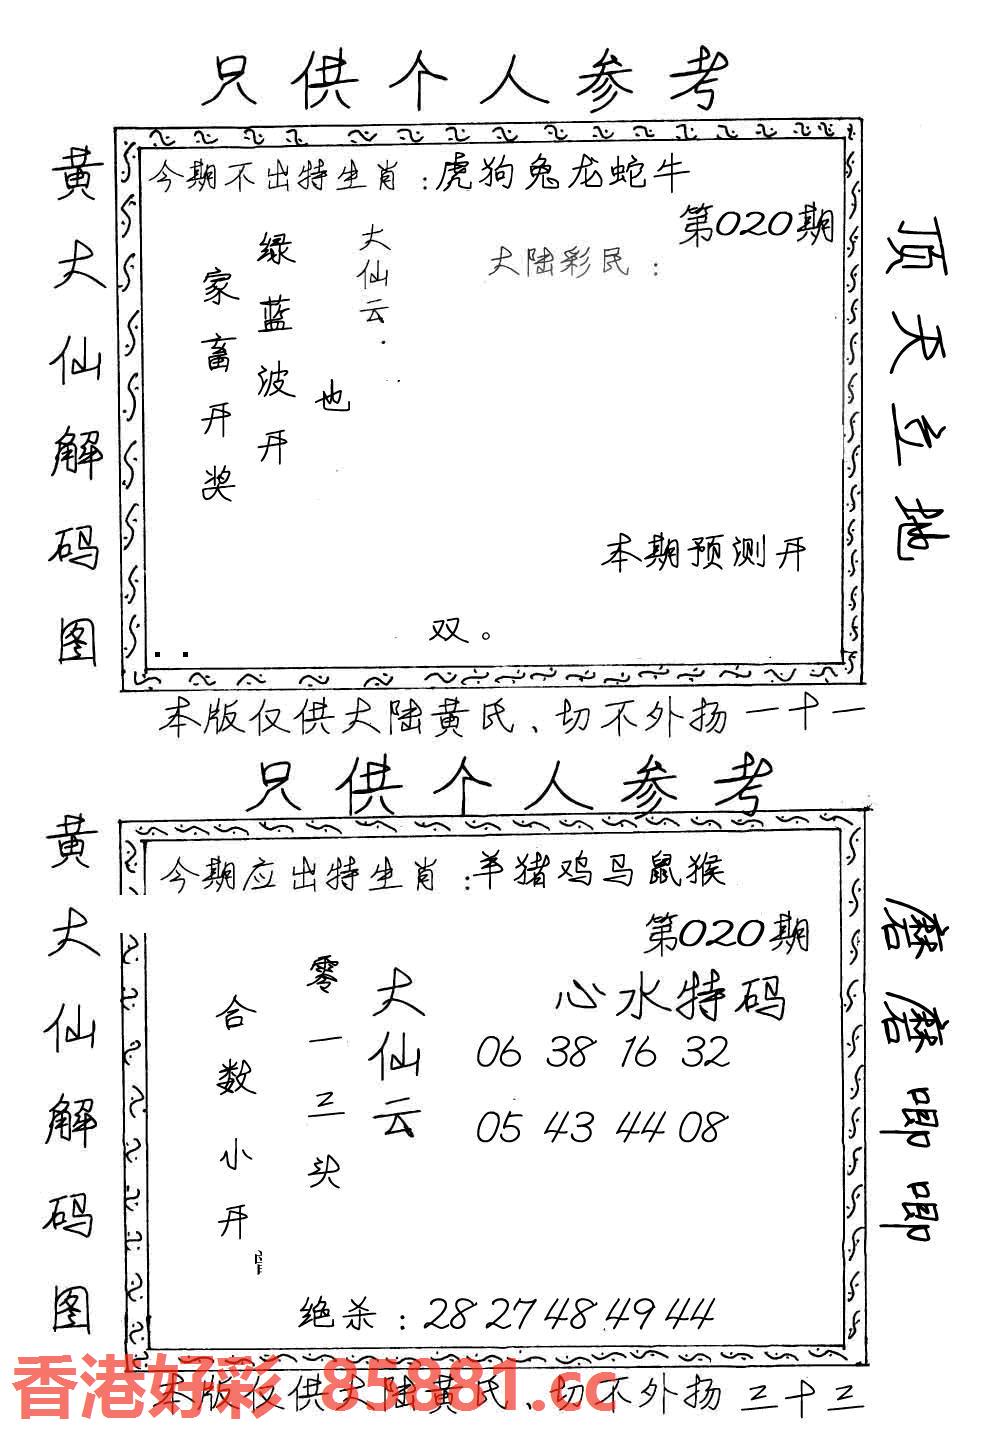 只供个人参考
黄大仙解码图
今期不出特生肖：虎狗兔龙蛇牛
第020期
大陆彩民：
大仙云：
绿蓝波开
也
家畜开奖
本期预测开
双。
顶天立地
本版仅供大陆黄氏、切不外扬 一十一
只供个人参考
黄大仙解码图
今期应出特生肖：羊猪鸡马鼠猴
第020期
心水特码
大仙云
零一三头
合数小开
06 38 16 32
05 43 44 08
绝杀：28 27 48 49 44
磨磨唧唧
本版仅供大陆黄氏、切不外扬 三十三
香港好彩 85881.cc